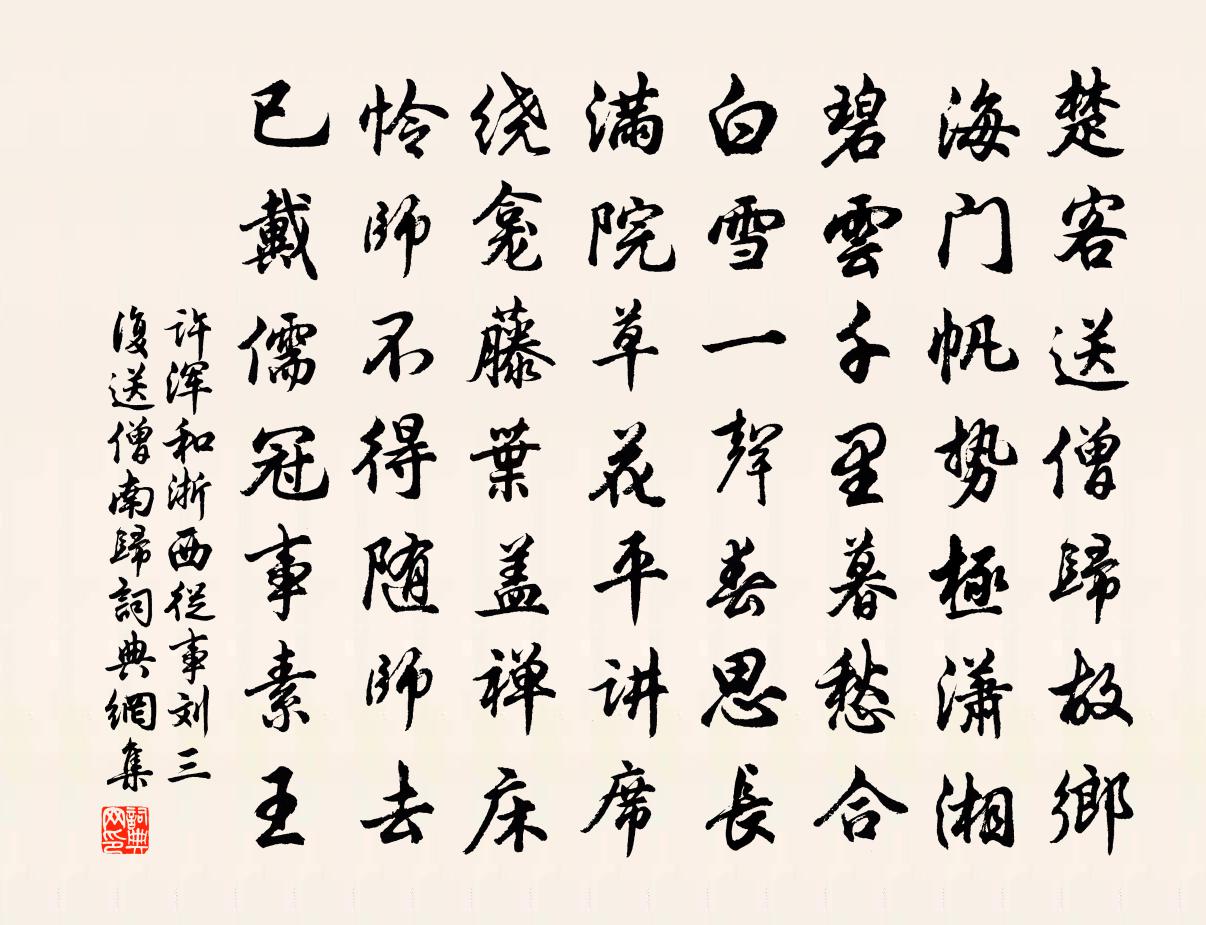 楚客送僧歸故鄉
海门帆势極潇湘
碧雲千里暮愁合
白雪一聲春思長
满院草花平讲席
绕龛藤葉盖禅床
怜师不得随师去
已戴儒冠事素王
许浑和浙西從事刘三
復送僧南歸詞典網集
詞典
网印